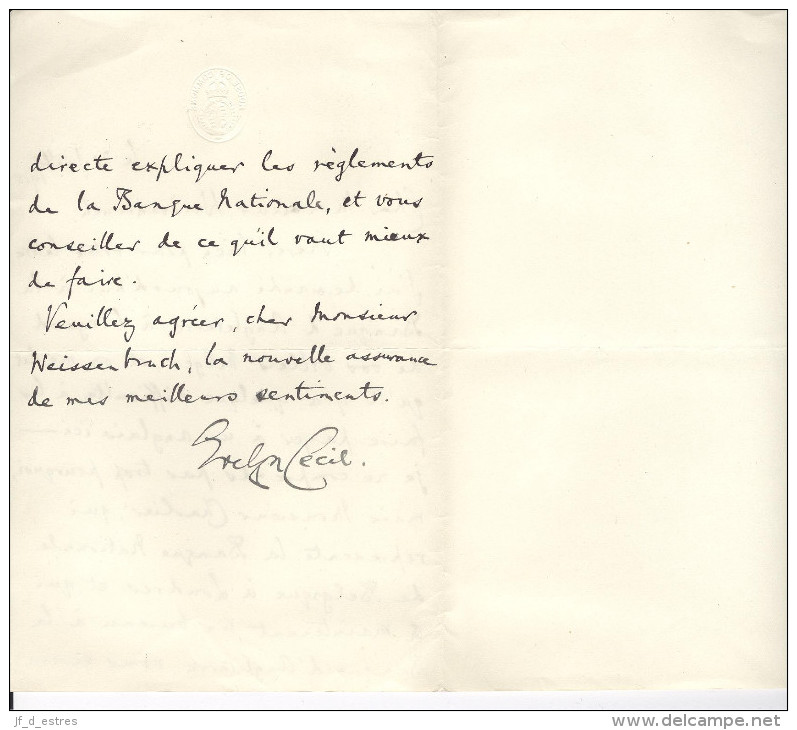 directe expliquer les règlements
de la Banque Nationale, et vous
conseiller de ce qu'il vaut mieux
de faire.
Veuillez agréer, cher Monsieur
Weissenbruch, la nouvelle assurance
de mes meilleurs sentiments.
Evelyn Cecil.
jf_d_estres
www.delcampe.net